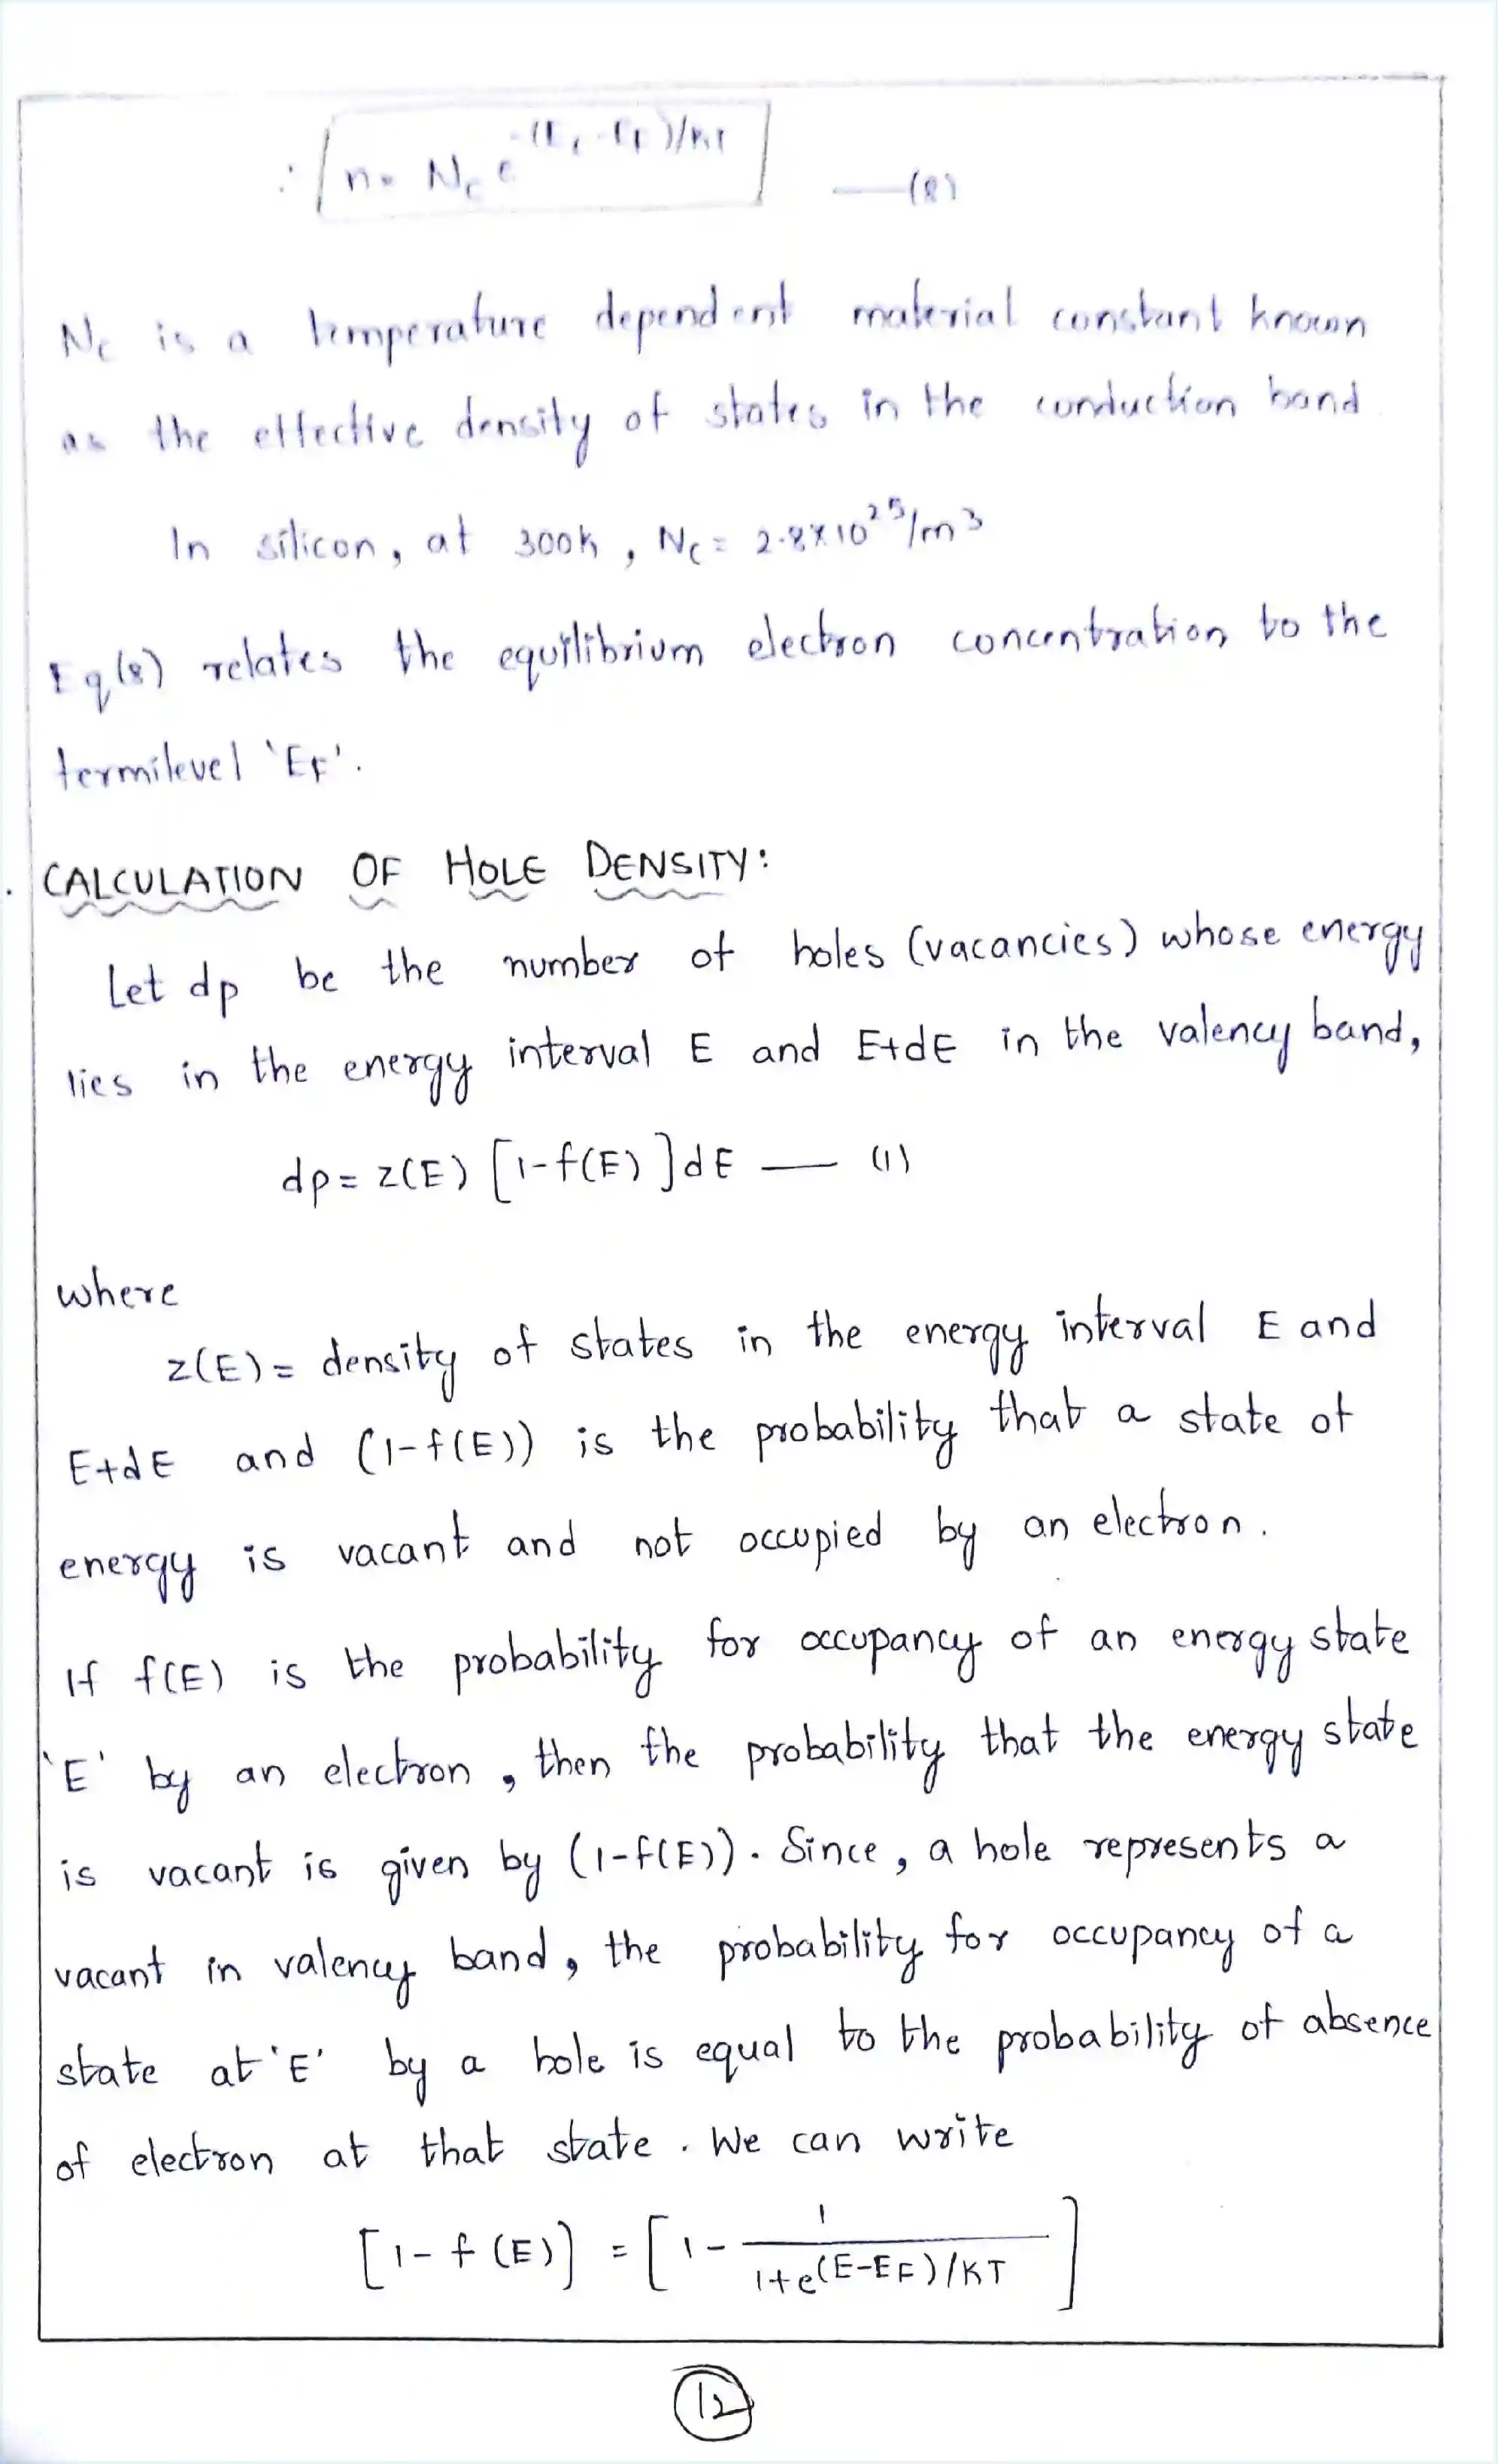 ∴ n = Nc e^-(Ec-EF)/KT —(8)
Nc is a temperature dependent material constant known
as the effective density of states in the conduction band
In silicon, at 300k, Nc = 2.8x10^25/m^3
Eq(8) relates the equilibrium electron concentration to the
fermilevel 'EF'.
CALCULATION OF HOLE DENSITY:
Let dp be the number of holes (vacancies) whose energy
lies in the energy interval E and E+dE in the valency band,
dp = z(E) [1-f(E)]dE — (1)
where
z(E) = density of states in the energy interval E and
E+dE and (1-f(E)) is the probability that a state of
energy is vacant and not occupied by an electron.
If f(E) is the probability for occupancy of an energy state
'E' by an electron, then the probability that the energy state
is vacant is given by (1-f(E)). Since, a hole represents a
vacant in valency band, the probability for occupancy of a
state at 'E' by a hole is equal to the probability of absence
of electron at that state. We can write
[1-f(E)] = [1 - 1/(1+e^(E-EF)/KT)]
12